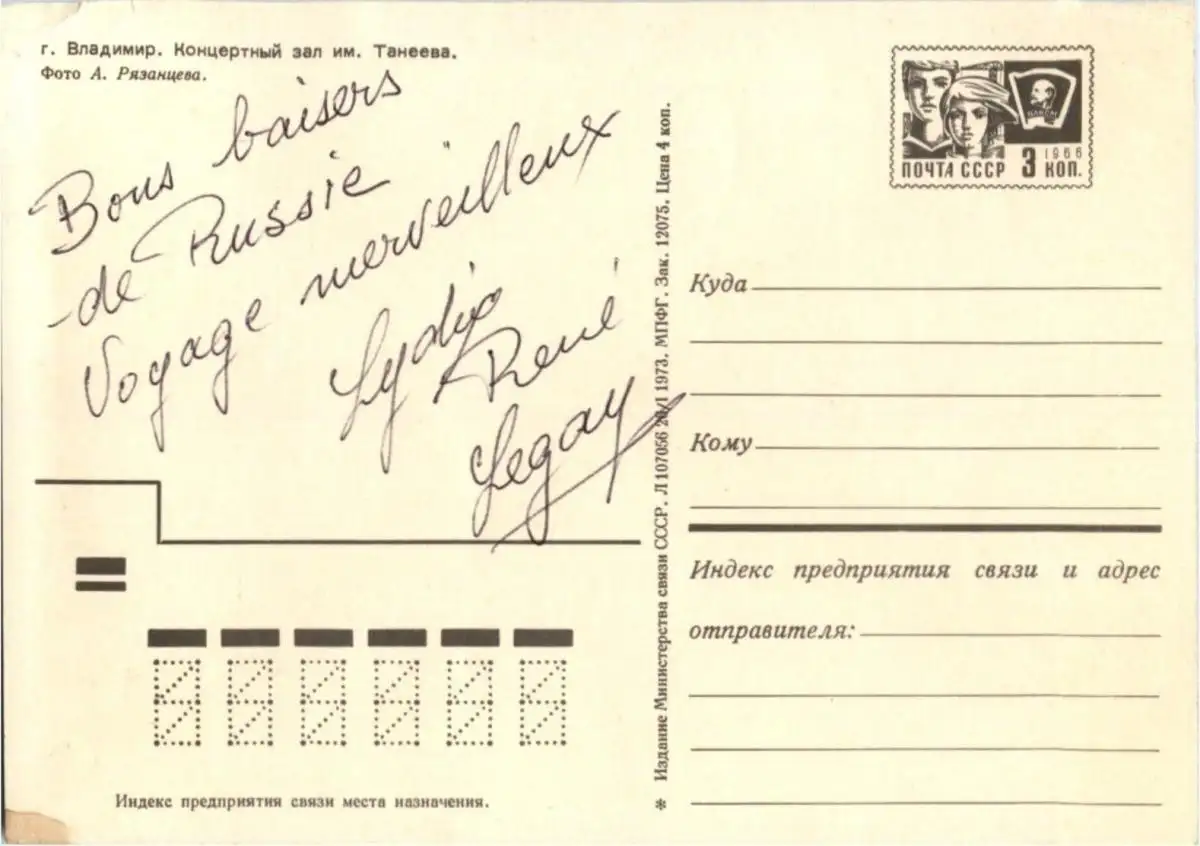 г. Владимир. Концертный зал им. Танеева.
Фото А. Рязанцева.
Bons baisers
de Russie
Voyage merveilleux
Lydia
René
Legay
Индекс предприятия связи места назначения.
* Издание Министерства связи СССР. Л107056 20/I 1973. МПФГ. Зак. 12075. Цена 4 коп.
ВЛКСМ
1966
ПОЧТА СССР 3 КОП.
Куда
Кому
Индекс предприятия связи и адрес
отправителя: